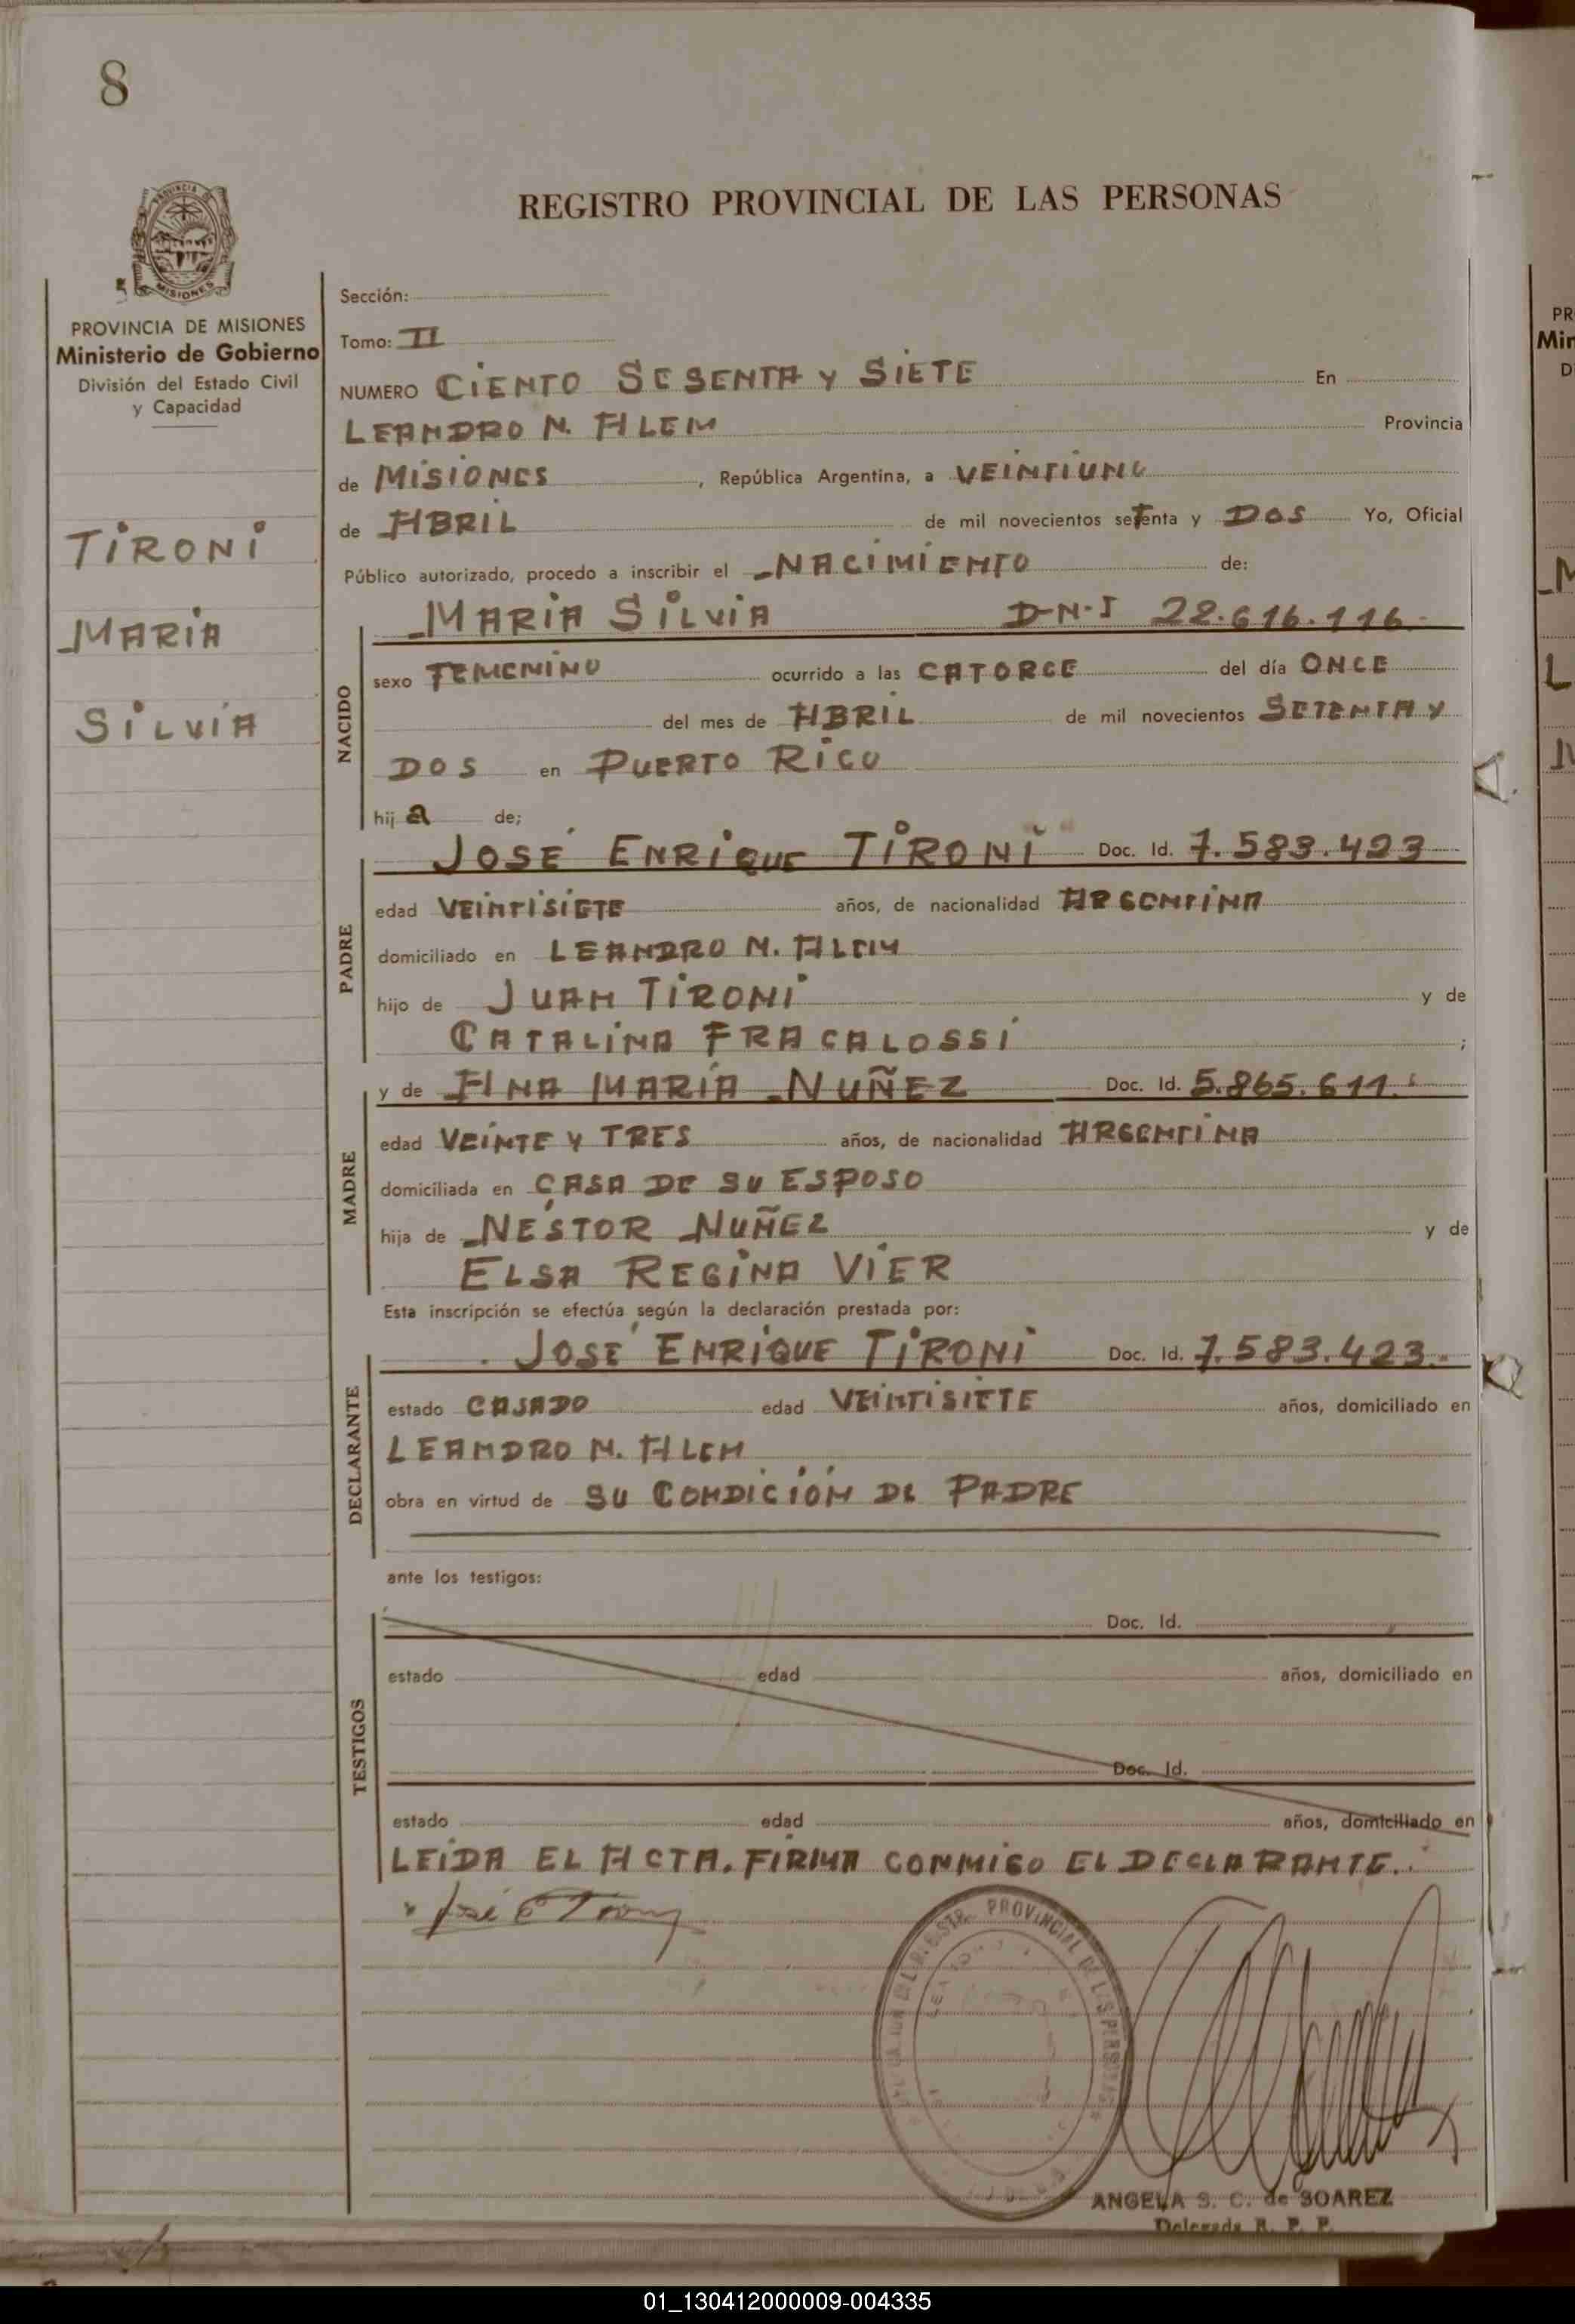 8
REGISTRO PROVINCIAL DE LAS PERSONAS
PROVINCIA DE MISIONES
Ministerio de Gobierno
División del Estado Civil
y Capacidad
TIRONI
MARIA
SILVIA
Sección:
Tomo: II
NUMERO CIENTO SESENTA Y SIETE En
LEANDRO N. ALEM Provincia
de MISIONES, República Argentina, a VEINTIUNO
de ABRIL de mil novecientos setenta y DOS Yo, Oficial
Público autorizado, procedo a inscribir el NACIMIENTO de:
NACIDO
MARIA SILVIA D-N-I 22.616.116
sexo FEMENINO ocurrido a las CATORCE del día ONCE
del mes de ABRIL de mil novecientos SETENTA Y
DOS en PUERTO RICO
hij a de;
PADRE
JOSÉ ENRIQUE TIRONI Doc. Id. 7.583.423
edad VEINTISIETE años, de nacionalidad ARGENTINA
domiciliado en LEANDRO N. ALEM
hijo de JUAN TIRONI y de
CATALINA FRACALOSSI ;
MADRE
y de ANA MARÍA NUÑEZ Doc. Id. 5.865.611.
edad VEINTE Y TRES años, de nacionalidad ARGENTINA
domiciliada en CASA DE SU ESPOSO
hija de NÉSTOR NUÑEZ y de
ELSA REGINA VIER
Esta inscripción se efectúa según la declaración prestada por:
DECLARANTE
JOSÉ ENRIQUE TIRONI Doc. Id. 7.583.423.-
estado CASADO edad VEINTISIETE años, domiciliado en
LEANDRO N. ALEM
obra en virtud de SU CONDICIÓN DE PADRE
ante los testigos:
TESTIGOS
Doc. Id.
estado edad años, domiciliado en
Doc. Id.
estado edad años, domiciliado en
LEÍDA EL ACTA. FIRMA CONMIGO EL DECLARANTE.
José E Tirony
PROVINCIAL DE LAS PERSONAS
ANGELA S. C. de SOAREZ
Delegada R. P. P.
01_130412000009-004335